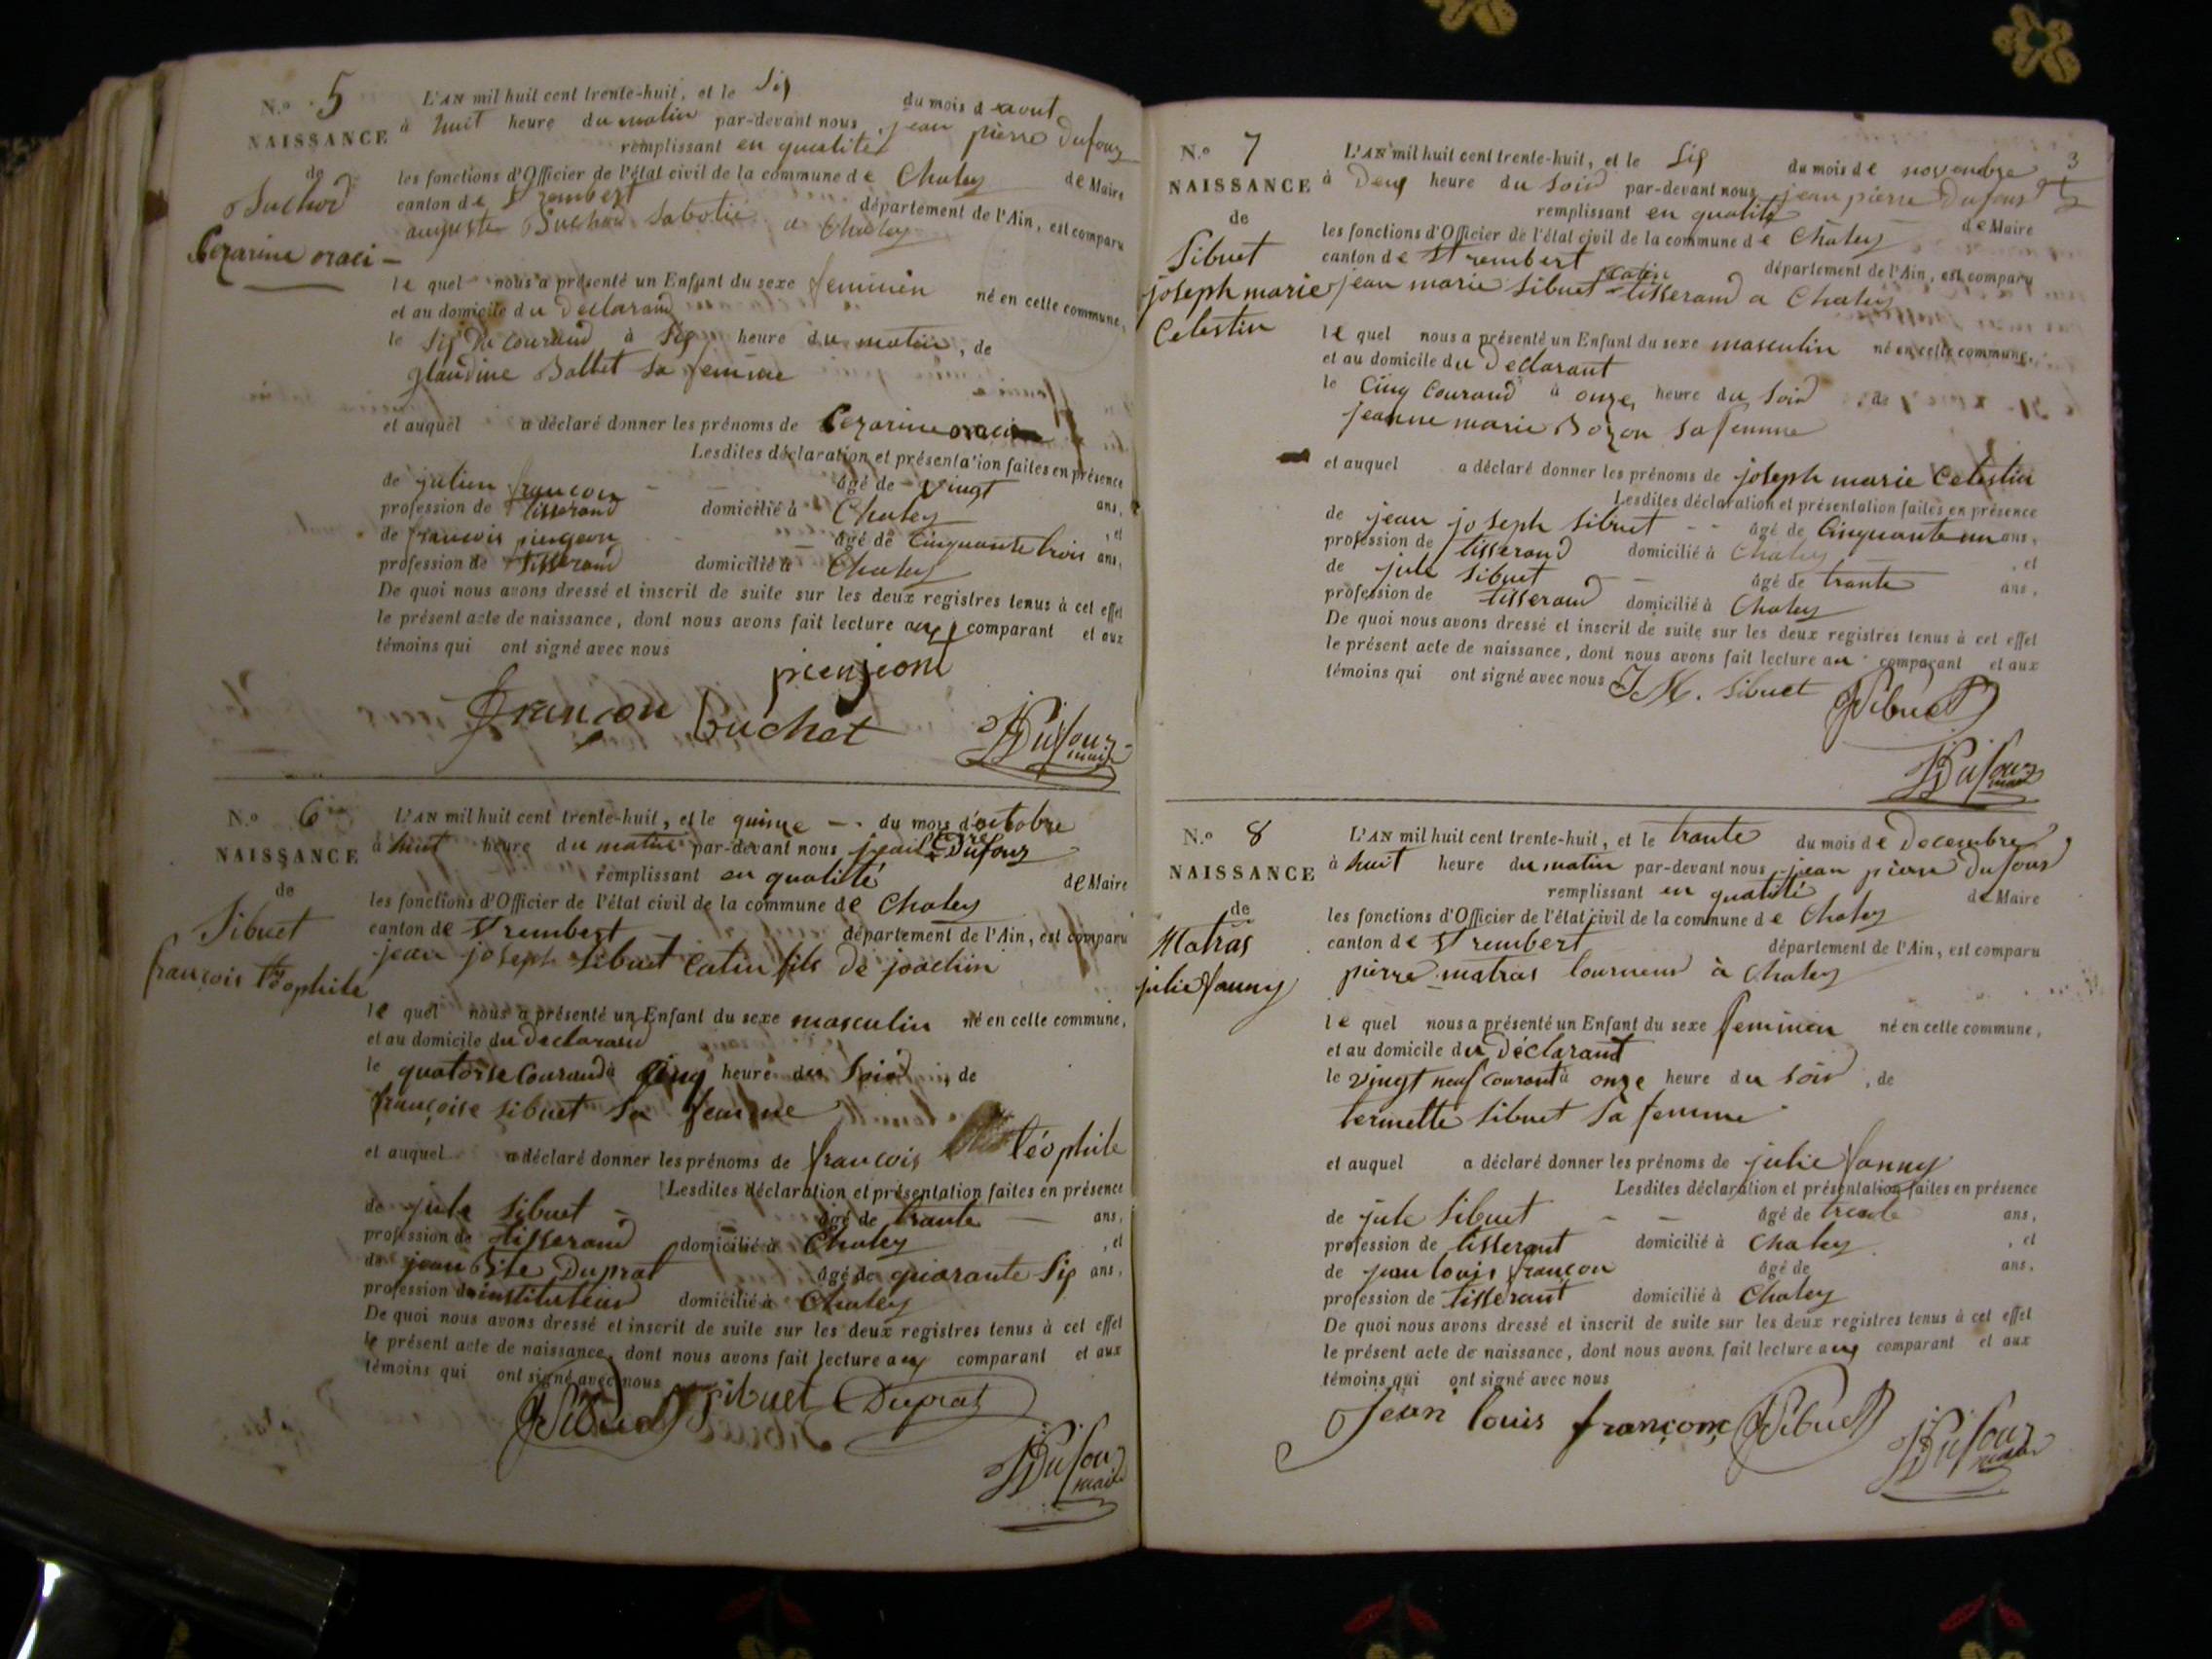 N.o 5
NAISSANCE
de
Buchod
Cezarine oraci -
L'AN mil huit cent trente-huit, et le Six du mois d aout
à huit heure du matin par-devant nous jean pierre Dufour
remplissant en qualité de Maire
les fonctions d'Officier de l'état civil de la commune de Chaley
canton de St rembert département de l'Ain, est comparu
auguste Buchod Sabotié a Chaley
le quel nous a présenté un Enfant du sexe feminin né en cette commune,
et au domicile du Declarand
le Six du Courand à Six heure du matin, de
glaudine Ballet sa femme
et auquel a déclaré donner les prénoms de Cezarine oraci
Lesdites déclaration et présentation faites en présence
de julien françon âgé de vingt ans,
profession de tisserand domicilié à Chaley , et
de francois pingeon âgé de Cinquante trois ans,
profession de tisserand domicilié à Chaley
De quoi nous avons dressé et inscrit de suite sur les deux registres tenus à cet effet
le présent acte de naissance, dont nous avons fait lecture aux comparant et aux
témoins qui ont signé avec nous
pienjeont
françon Buchet JPDufour
maire
N.o 6
NAISSANCE
de
Sibuet
françois téophile
L'AN mil huit cent trente-huit, et le quinze du mois d'octobre
à huit heure du matin par-devant nous jean Pre Dufour
remplissant en qualité de Maire
les fonctions d'Officier de l'état civil de la commune de Chaley
canton de St rembert département de l'Ain, est comparu
jean joseph Sibuet Catin fils de joachin
le quel nous a présenté un Enfant du sexe masculin né en cette commune,
et au domicile du declarand
le quatorse Courand à Cinq heure du Soir, de
françoise sibuet Sa femme
et auquel a déclaré donner les prénoms de francois téophile
Lesdites déclaration et présentation faites en présence
de jule Sibuet âgé de trante ans,
profession de tisserand domicilié à Chaley , et
de jean Bte Duprat âgé de quarante Six ans,
profession de instituteur domicilié à Chaley
De quoi nous avons dressé et inscrit de suite sur les deux registres tenus à cet effet
le présent acte de naissance, dont nous avons fait lecture aux comparant et aux
témoins qui ont signé avec nous
JSibuet Sibuet Duprat
JPDufour
maire
3
N.o 7
NAISSANCE
de
Sibuet
joseph marie
Celestin
L'AN mil huit cent trente-huit, et le Six du mois de novembre
à Deux heure du Soir par-devant nous jean pierre Dufour
remplissant en qualité de Maire
les fonctions d'Officier de l'état civil de la commune de Chaley
canton de St rembert département de l'Ain, est comparu
jean marie Sibuet Catin tisserand a Chaley
le quel nous a présenté un Enfant du sexe masculin né en cette commune,
et au domicile du Declarant
le Cinq Courand à onze heure du Soir, de
jeanne marie Bozon Sa femme
et auquel a déclaré donner les prénoms de joseph marie Celestin
Lesdites déclaration et présentation faites en présence
de jean joseph Sibuet âgé de Cinquante un ans,
profession de tisserand domicilié à Chaley , et
de jule Sibuet âgé de trante ans,
profession de tisserand domicilié à Chaley
De quoi nous avons dressé et inscrit de suite sur les deux registres tenus à cet effet
le présent acte de naissance, dont nous avons fait lecture au comparant et aux
témoins qui ont signé avec nous J M. Sibuet JSibuet
JPDufour
maire
N.o 8
NAISSANCE
de
Matras
julie fanny
L'AN mil huit cent trente-huit, et le trante du mois de Decembre,
à huit heure du matin par-devant nous jean pierre Dufour
remplissant en qualité de Maire
les fonctions d'Officier de l'état civil de la commune de Chaley
canton de St rembert département de l'Ain, est comparu
pierre matras tourneur à Chaley
le quel nous a présenté un Enfant du sexe feminin né en cette commune,
et au domicile du Déclarant
le vingt neuf Courant à onze heure du Soir, de
termette Sibuet Sa femme
et auquel a déclaré donner les prénoms de julie fanny
Lesdites déclaration et présentation faites en présence
de jule Sibuet âgé de trente ans,
profession de tisserant domicilié à Chaley , et
de jean louis françon âgé de ans,
profession de tisserant domicilié à Chaley
De quoi nous avons dressé et inscrit de suite sur les deux registres tenus à cet effet
le présent acte de naissance, dont nous avons fait lecture aux comparant et aux
témoins qui ont signé avec nous
Jean louis françon JSibuet JPDufour
maire